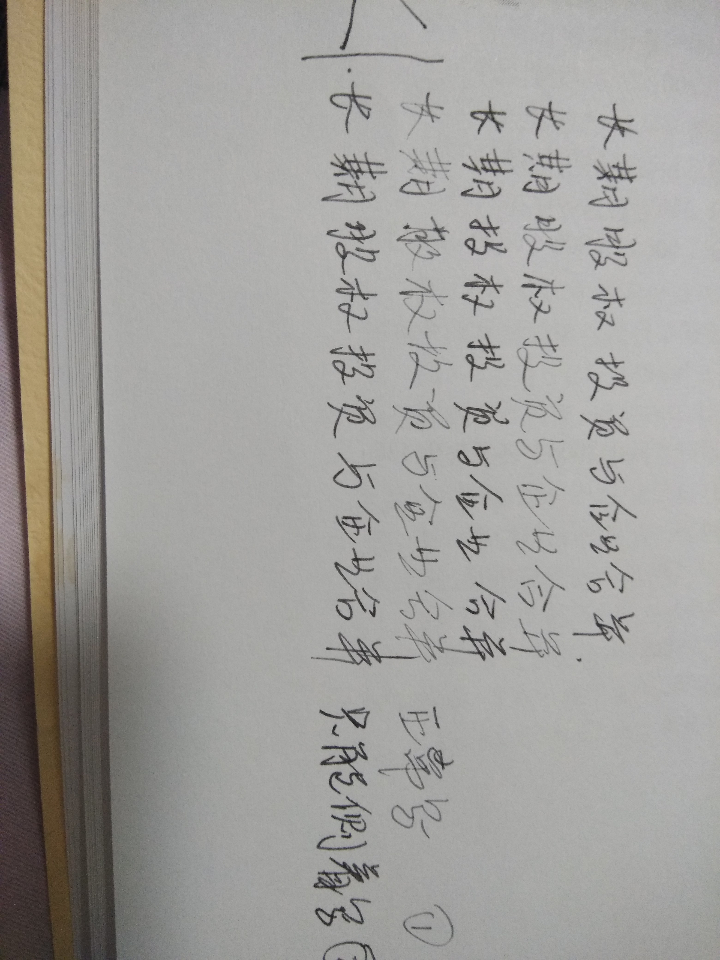 长期股权投资与企业合并
长期股权投资与企业合并.
长期股权投资与企业合并
长期股权投资与企业合并 正常写 ①
长期股权投资与企业合并 只能侧着写 ②